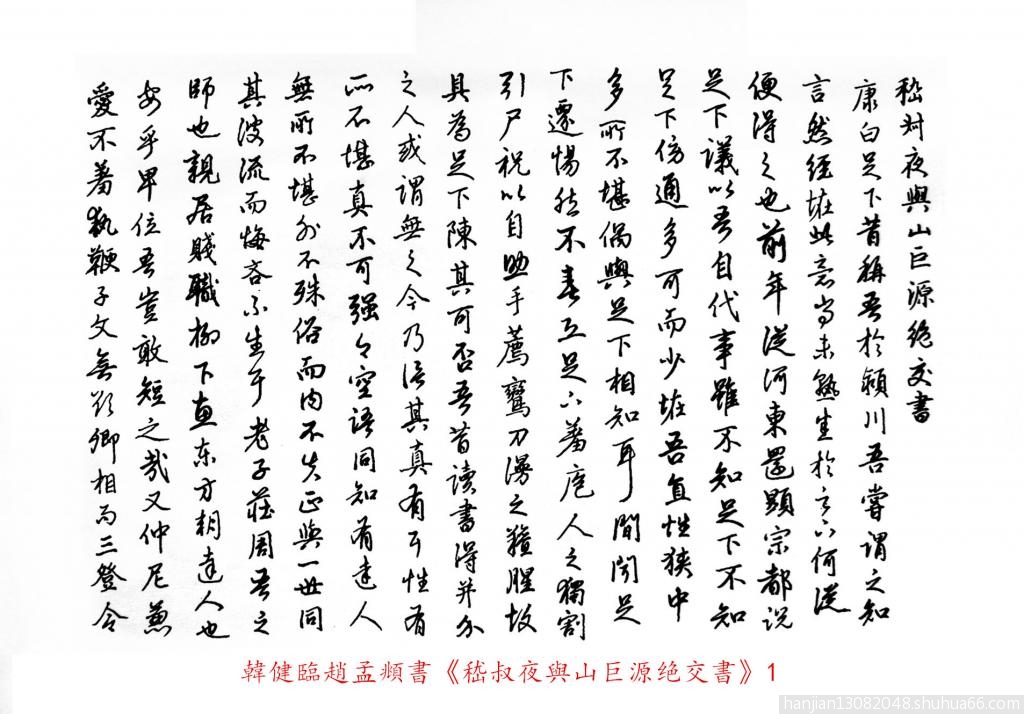 嵇叔夜與山巨源絕交書
康白足下昔稱吾於潁川吾嘗謂之知
言然經怪此意尚未熟生於足下何從
便得之也前年從河東還顯宗都說
足下議以吾自代事雖不知足下不知
足下傍通多可而少怪吾直性狹中
多所不堪偶與足下相知耳間聞足
下遷惕然不喜恐足下羞庖人之獨割
引尸祝以自助手薦鸞刀漫之羶腥故
具為足下陳其可否吾昔讀書得并介
之人或謂無之今乃信其真有耳性有
所不堪真不可强今空語同知有達人
無所不堪外不殊俗而内不失正與一世同
其波流而悔吝不生乎老子莊周吾之
師也親居賤職柳下惠東方朔達人也
安乎卑位吾豈敢短之哉又仲尼兼
愛不羞執鞭子文無欲卿相而三登令
韓健臨趙孟頫書《嵇叔夜與山巨源绝交書》1
hanjian13082048.shuhua66.com